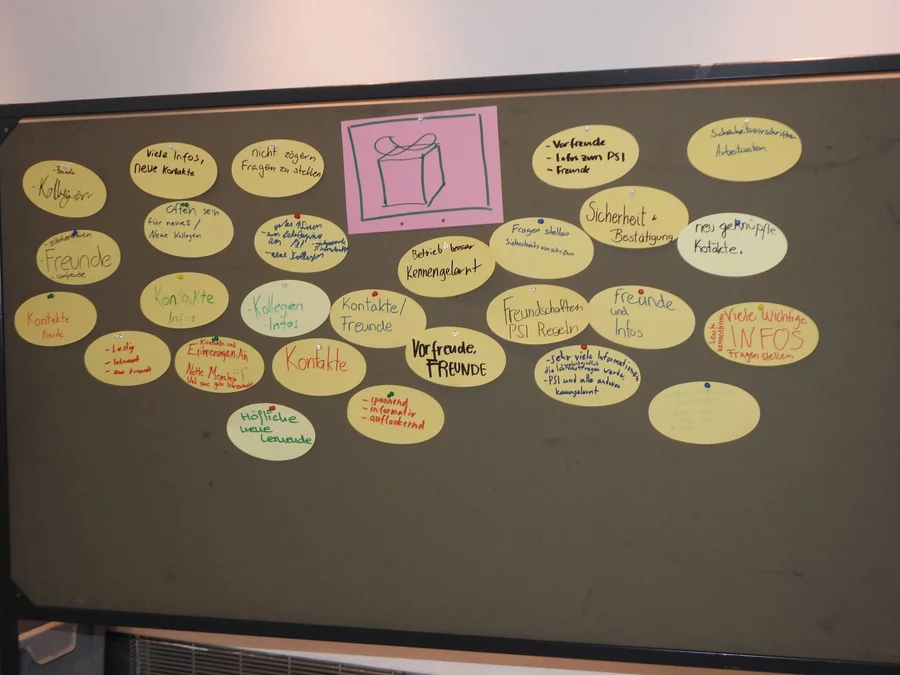 - Freunde
Kollegen
Viele Infos,
neue Kontakte
nicht zögern
Fragen zu stellen
- Vorfreude
- Infos zum PSI
- Freunde
Sicherheitsvorschriften
Arbeitszeiten
Offen sein
für neues /
Neue Kollegen
am PSI
- neue Kollegen
Betrieb besser
Kennengelernt
Fragen stellen
Sicherheitsvorschriften
Sicherheit +
Bestätigung
neu geknüpfte
Kotakte.
- Freunde
- Vorfreude
Kontakte
Freude
Kontakte
Infos
- Kollegen
- Infos
Kontakte/
Freunde
Freundschaften
PSI Regeln
Freunde
und
Infos
Viele Wichtige
INFOS
Fragen stellen
- Lustig
- Interesant
Kontakte und
Erinnerungen An
Nette Menschen
Kontakte
Vorfreude,
FREUNDE
- Sehr viele Informationen
- PSI und alle anderen
kennengelernt
Höfliche
neue
Lernende
- spannend
- informativ
- auflockernd